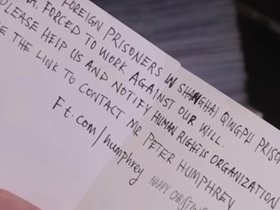 FOREIGN PRISONERS IN SHANGHAI QINGPU PRISON
FORCED TO WORK AGAINST OUR WILL.
PLEASE HELP US AND NOTIFY HUMAN RIGHTS ORGANIZATION
THE LINK TO CONTACT MR PETER HUMPHREY
Ft.com/humphrey HAPPY CHRISTMAS